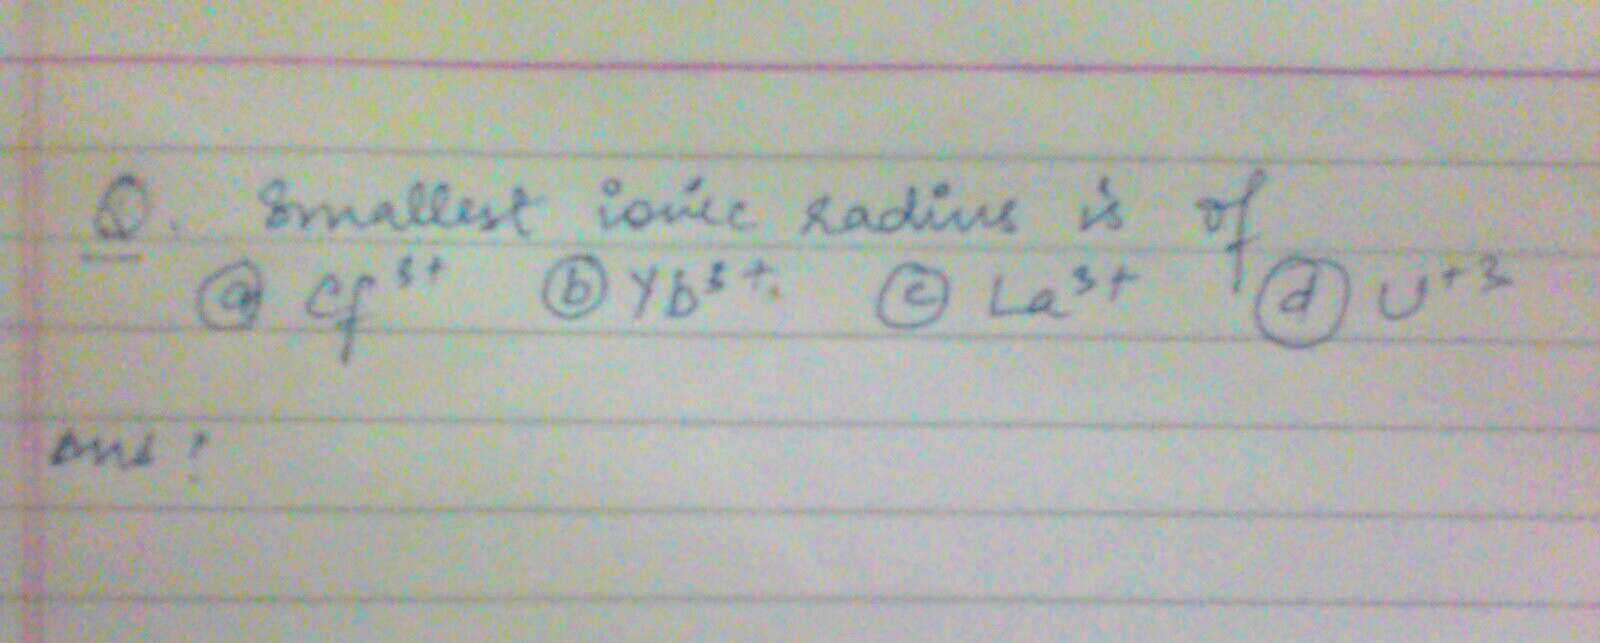 Q. Smallest ionic radius is of
(a) Cf³⁺ (b) Yb³⁺ (c) La³⁺ (d) U⁺³
Ans?